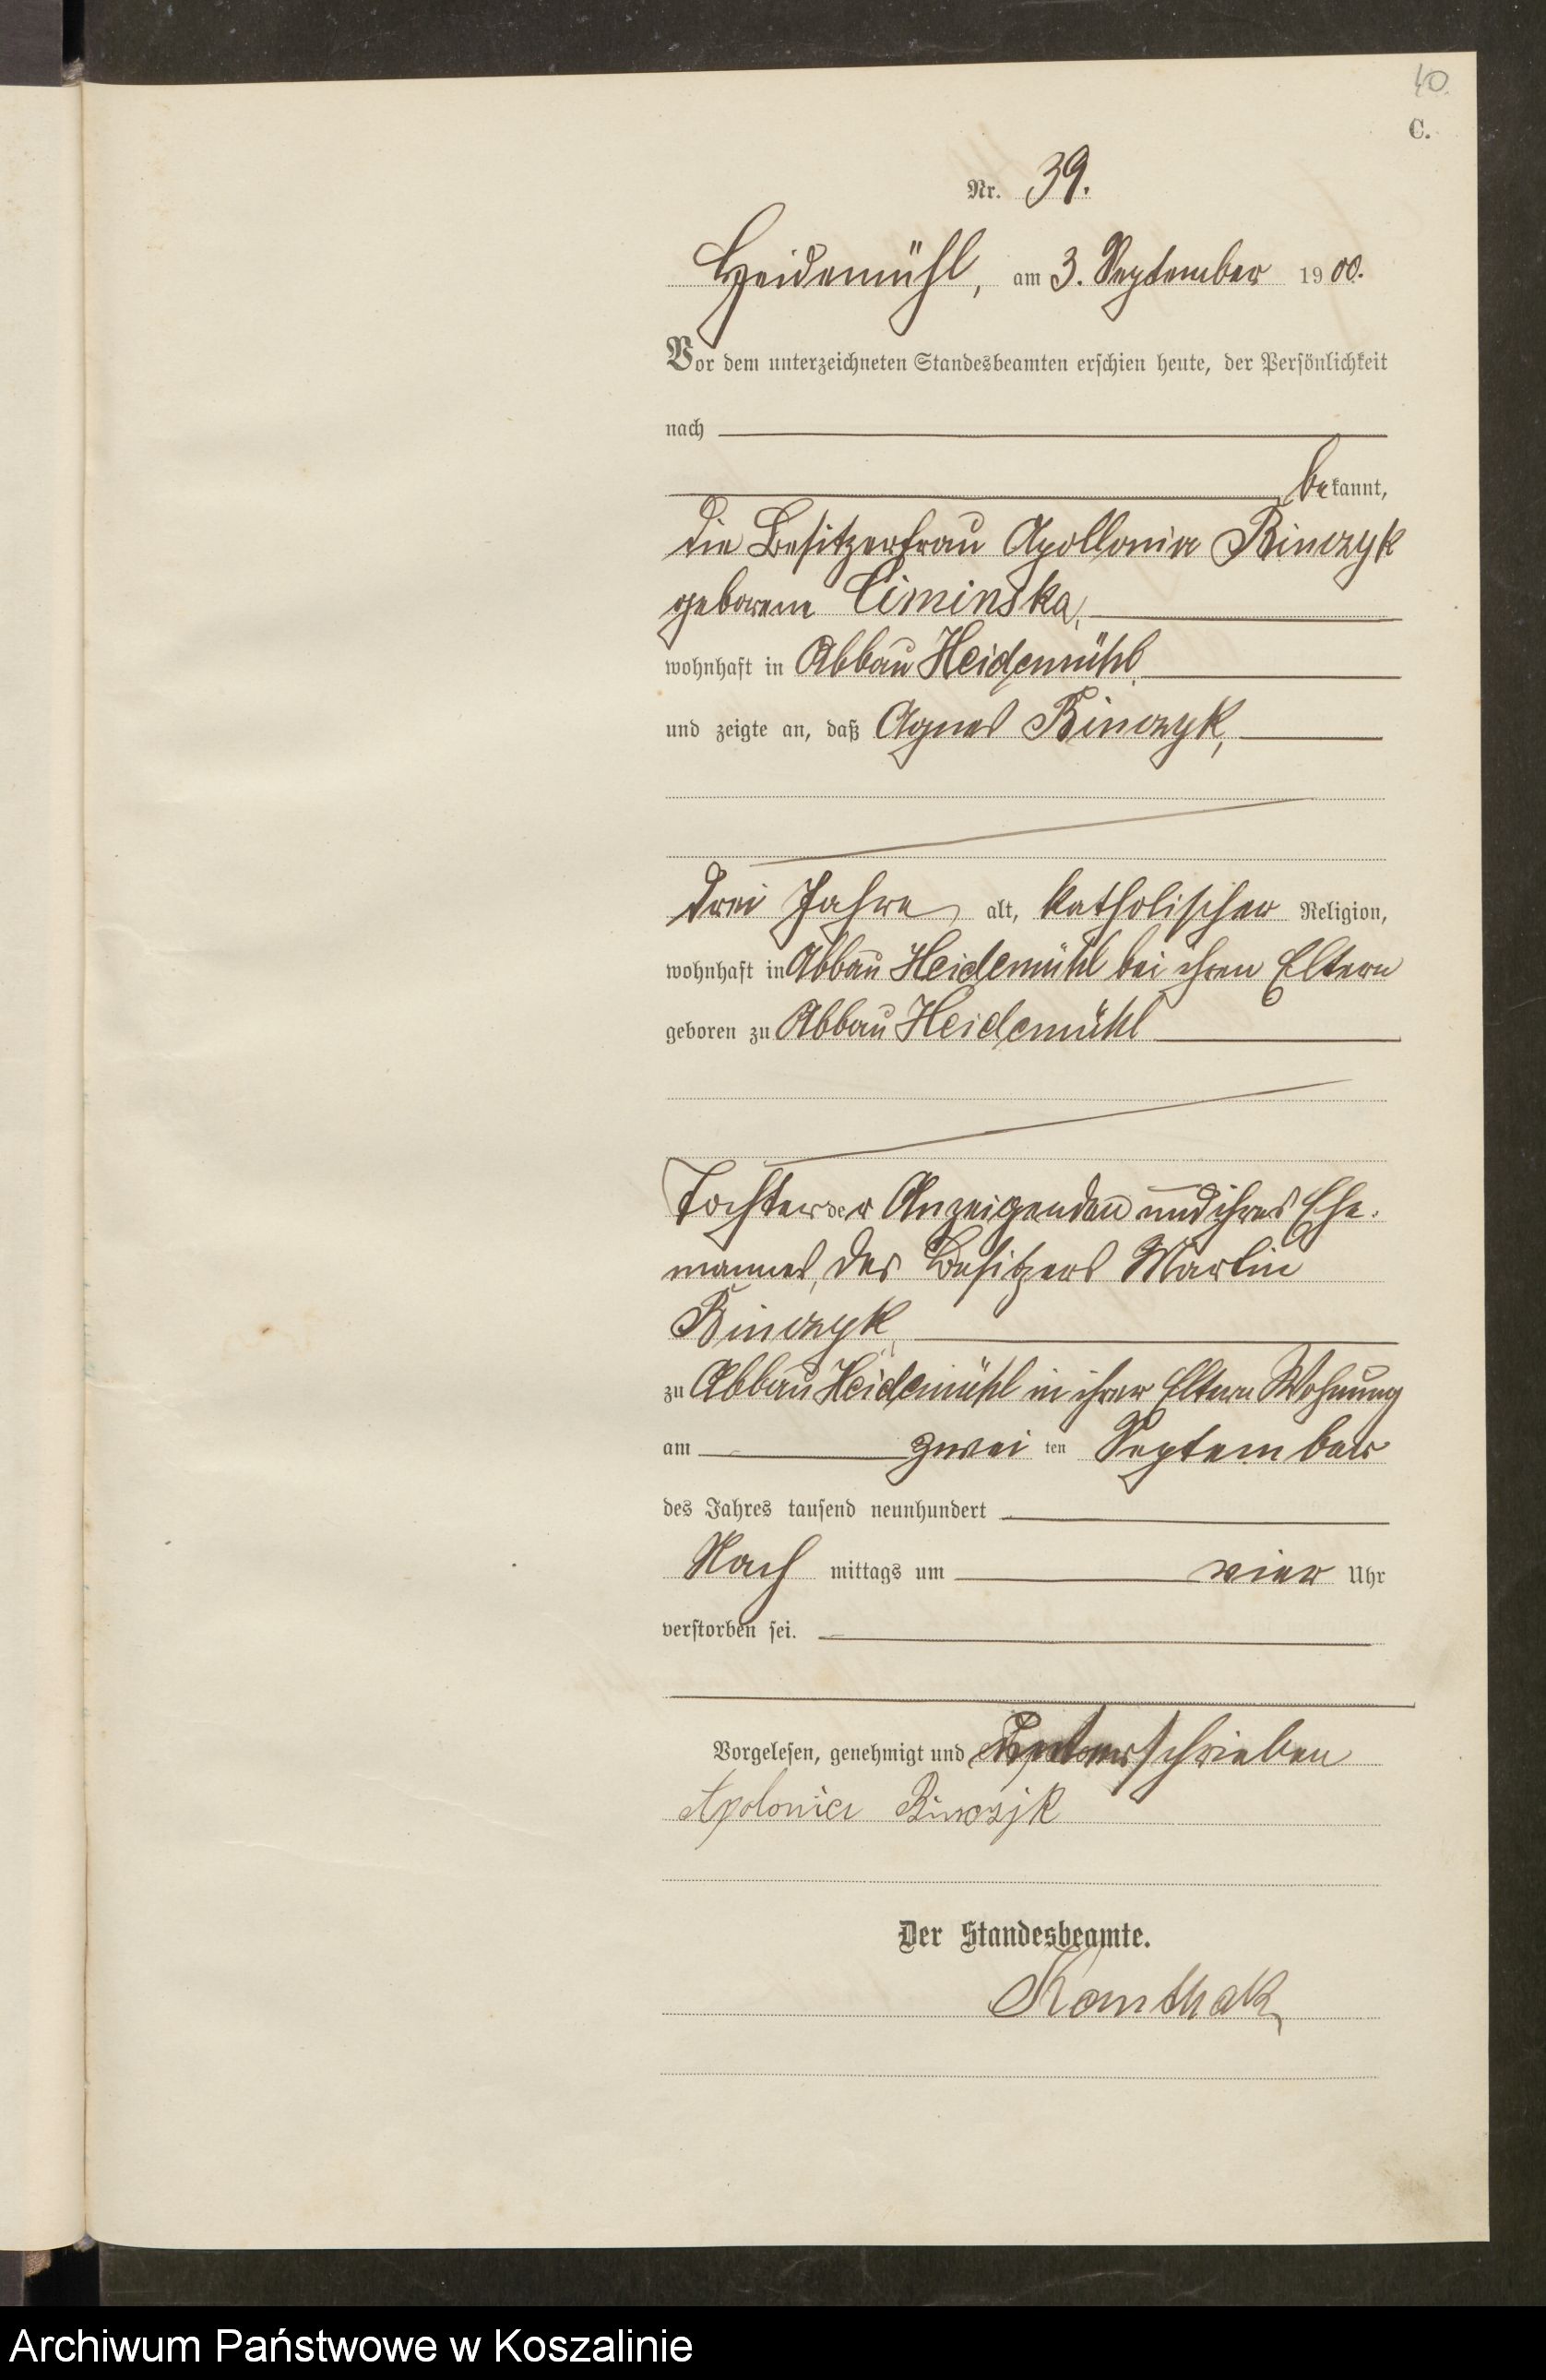 40.
C.
Nr. 39.
Heidemühl, am 3. September 1900.
Vor dem unterzeichneten Standesbeamten erschien heute, der Persönlichkeit
nach
bekannt,
die Besitzerfrau Apollonia Binczyk
geborene Ciminska,
wohnhaft in Abbau Heidemühl
und zeigte an, daß Agnes Binczyk,
drei Jahre alt, katholischer Religion,
wohnhaft in Abbau Heidemühl bei ihren Eltern
geboren zu Abbau Heidemühl
Tochter der Anzeigenden und ihres Ehe-
mannes, des Besitzers Martin
Binczyk,
zu Abbau Heidemühl in ihrer Eltern Wohnung
am zweiten September
des Jahres tausend neunhundert
Nachmittags um vier Uhr
verstorben sei.
Vorgelesen, genehmigt und unterschrieben
Apolonia Binczjk
Der Standesbeamte.